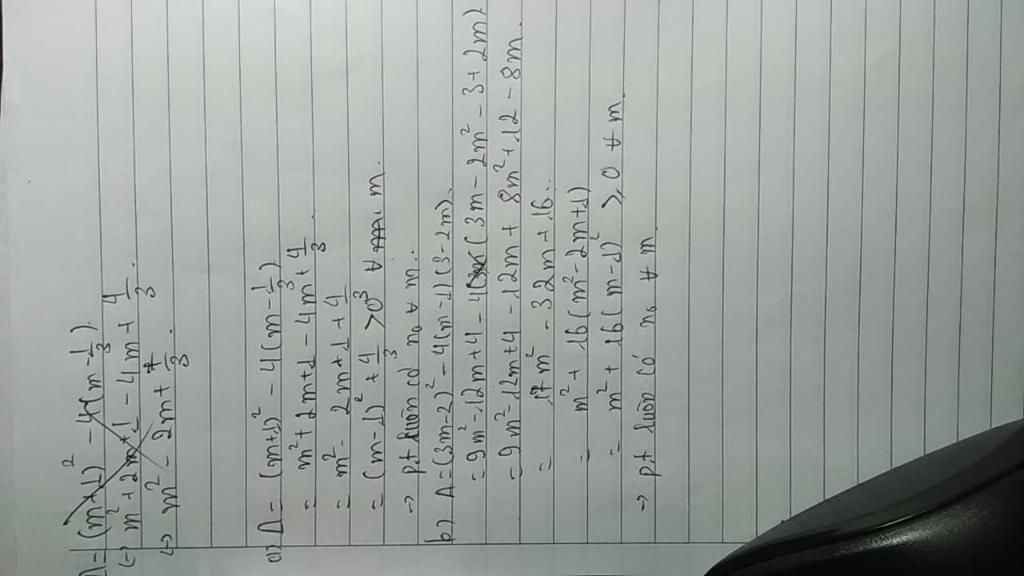 Δ = (m+1)² - 4(m - 1/3)
(→ m² + 2m + 1 - 4m + 4/3.
(→ m² - 2m + 7/3.
a) Δ = (m+1)² - 4(m - 1/3)
= m² + 2m + 1 - 4m + 4/3.
= m² - 2m + 1 + 4/3
= (m-1)² + 4/3 > 0 ∀ m.
→ pt luôn có n₀ ∀ m.
b) Δ = (3m-2)² - 4(m-1)(3-2m).
= 9m² - 12m + 4 - 4(3m - 2m² - 3 + 2m)
= 9m² - 12m + 4 - 12m + 8m² + 12 - 8m.
= 17m² - 32m + 16.
= m² + 16(m² - 2m + 1)
= m² + 16(m-1)² ≥ 0 ∀ m.
→ pt luôn có n₀ ∀ m